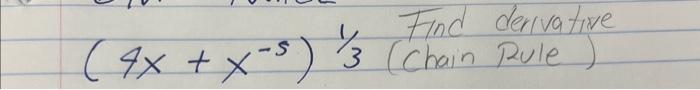 Find derivative
(4x + x⁻⁵)^1/3 (Chain Rule)